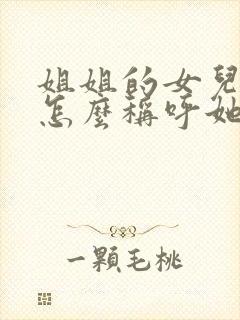 姐姐的女兒
怎麼稱呼她
一顆毛桃